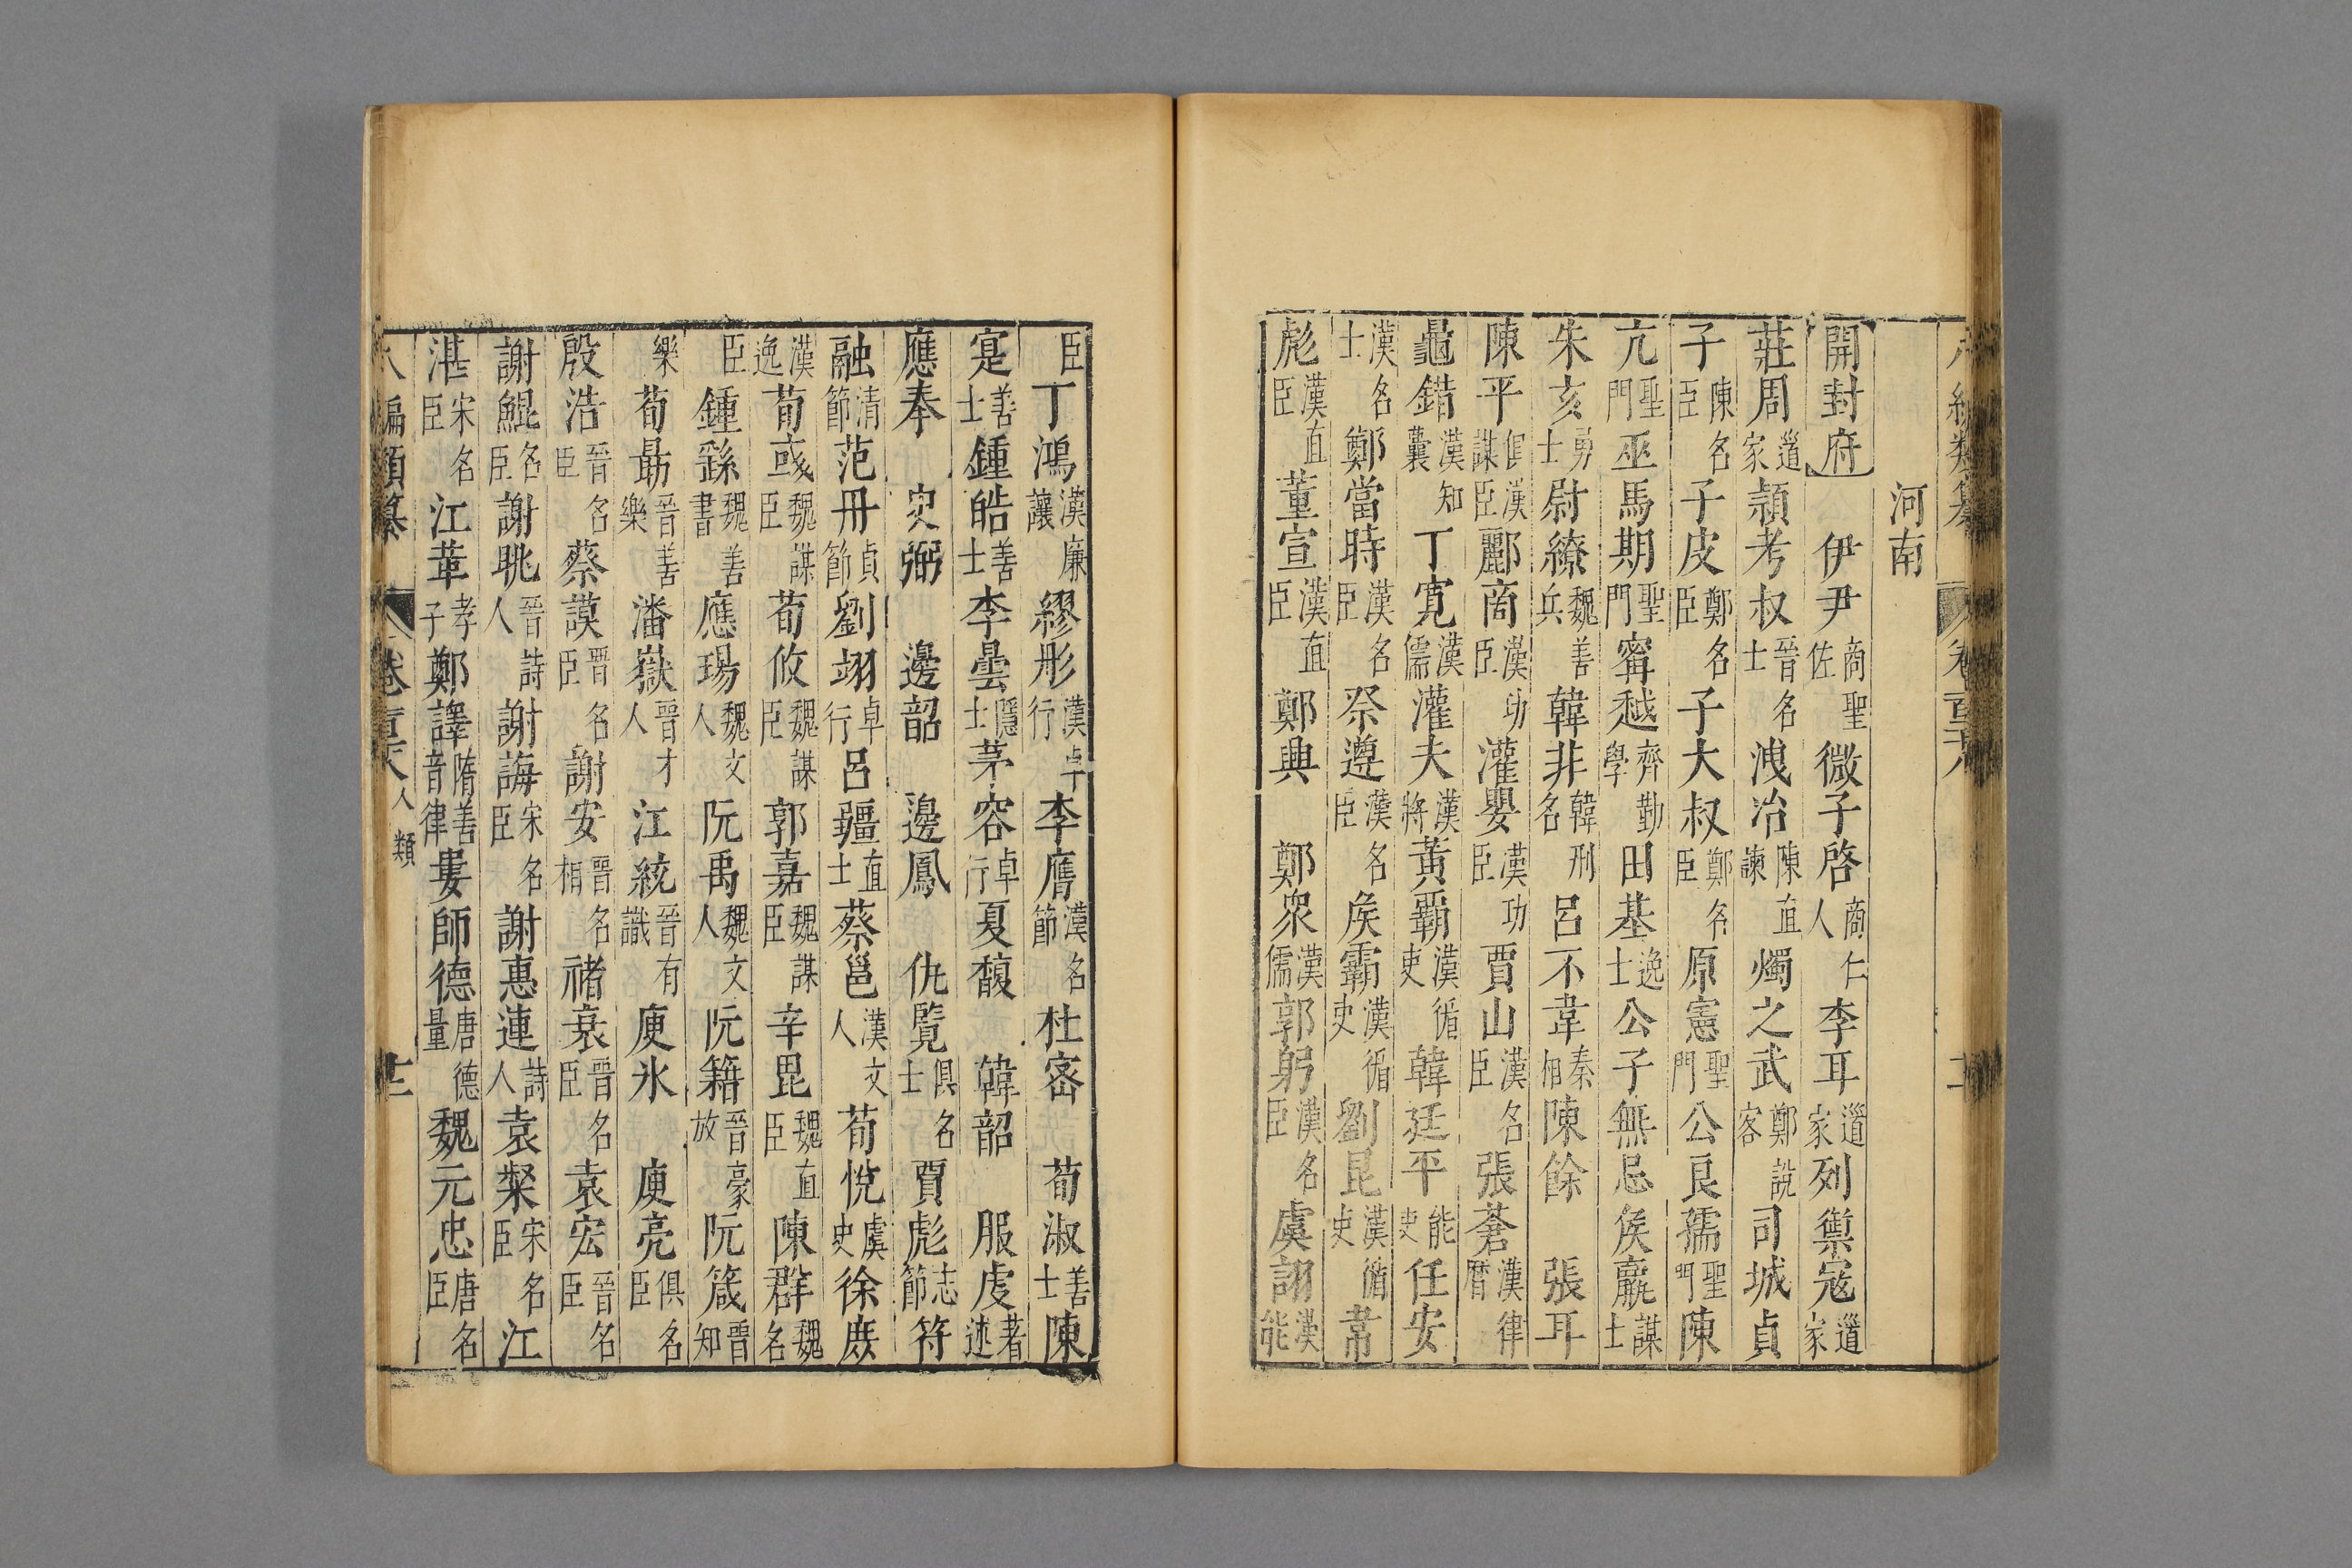 河南
開封府 伊尹商聖佐 微子啓商仁人 李耳道家 列禦寇道家
莊周道家 穎考叔晉名士 洩冶陳直諫 燭之武鄭說客 司城貞
子陳名臣 子皮鄭名臣 子大叔鄭名臣 原憲聖門 公良孺聖門 陳
亢聖門 巫馬期聖門 甯越齊勤學 田基逸士 公子無忌 侯嬴謀士
朱亥勇士 尉繚魏善兵 韓非韓刑名 呂不韋秦相 陳餘 張耳
陳平俱漢謀臣 酈商漢功臣 灌嬰漢功臣 賈山漢名臣 張蒼漢律曆
鼂錯漢知囊 丁寬漢儒 灌夫漢將 黃霸漢循吏 韓延平能吏 任安
漢名士 鄭當時漢名臣 祭遵漢名臣 侯霸漢循吏 劉昆漢循吏 常
彪漢直臣 董宣漢直臣 鄭興 鄭眾漢儒 郭躬漢名臣 虞詡漢能
臣 丁鴻漢廉讓 繆彤漢卓行 李膺漢名節 杜密 荀淑善士 陳
寔善士 鍾皓善士 李曇隱士 茅容卓行 夏馥 韓韶 服虔著述
應奉 史弼 邊韶 邊鳳 仇覽俱名士 賈彪志節 符
融清節 范冉貞節 劉翊卓行 呂疆直士 蔡邕漢文人 荀悅虞史 徐庶
漢逸 荀彧魏謀臣 荀攸魏謀臣 郭嘉魏謀臣 辛毘魏直臣 陳群魏名
臣 鍾繇魏善書 應瑒魏文人 阮禹魏文人 阮籍晉豪放 阮箴晉知
樂 荀勗晉善樂 潘嶽晉才人 江統晉有識 庾冰 庾亮俱名臣
殷浩晉名臣 蔡謨晉名臣 謝安晉名相 褚裒晉名臣 袁宏晉名臣
謝鯤名臣 謝眺晉詩人 謝誨宋名臣 謝惠連詩人 袁粲宋名臣 江
湛宋名臣 江革孝子 鄭譯隋善音律 婁師德唐德量 魏元忠唐名臣
八編類纂 卷百八 人類